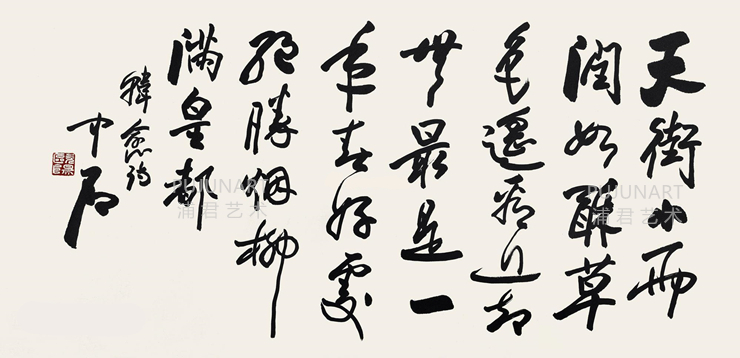 天街小雨
潤如酥草
色遥看近却
無最是一
年春好處
絕勝烟柳
滿皇都
韓愈詩
中石
PUJUNART
浦君艺术
PUJUNART
浦君艺术